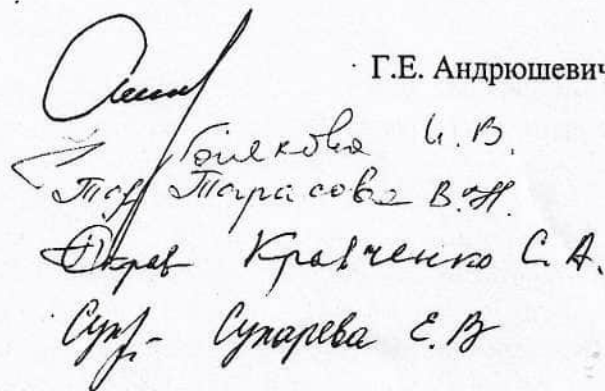 Г.Е. Андрюшевич
И.В.
Тарасова В.Н.
Кравченко С.А.
Сухарева Е.В